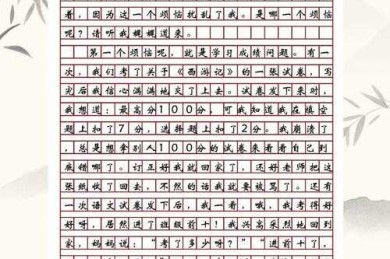 看，因为这一个烦恼扰乱了我。是哪一个烦恼
呢？请听我娓娓道来。
第一个烦恼呢，就是学习成绩问题。有一
次，我们考了关于《西游记》的一张试卷，写
完后我信心满满地交了上去。试卷发下来时，
我想道：最高分100分，可我知道我在填空
题上扣了7分，选择题上扣了2分。我崩溃了
，总是想拿别人100分的试卷来看看自己到
底错哪了。订正好我就回家了，还好老师把这
张纸收了回去，不然的话我就要被骂了。还有
一次语文试卷发下后，我一看，哦，我考得好
好呀，居然进了班级前十！我兴高采烈地回到
家，妈妈说：“考了多少呀？”“进前十了，